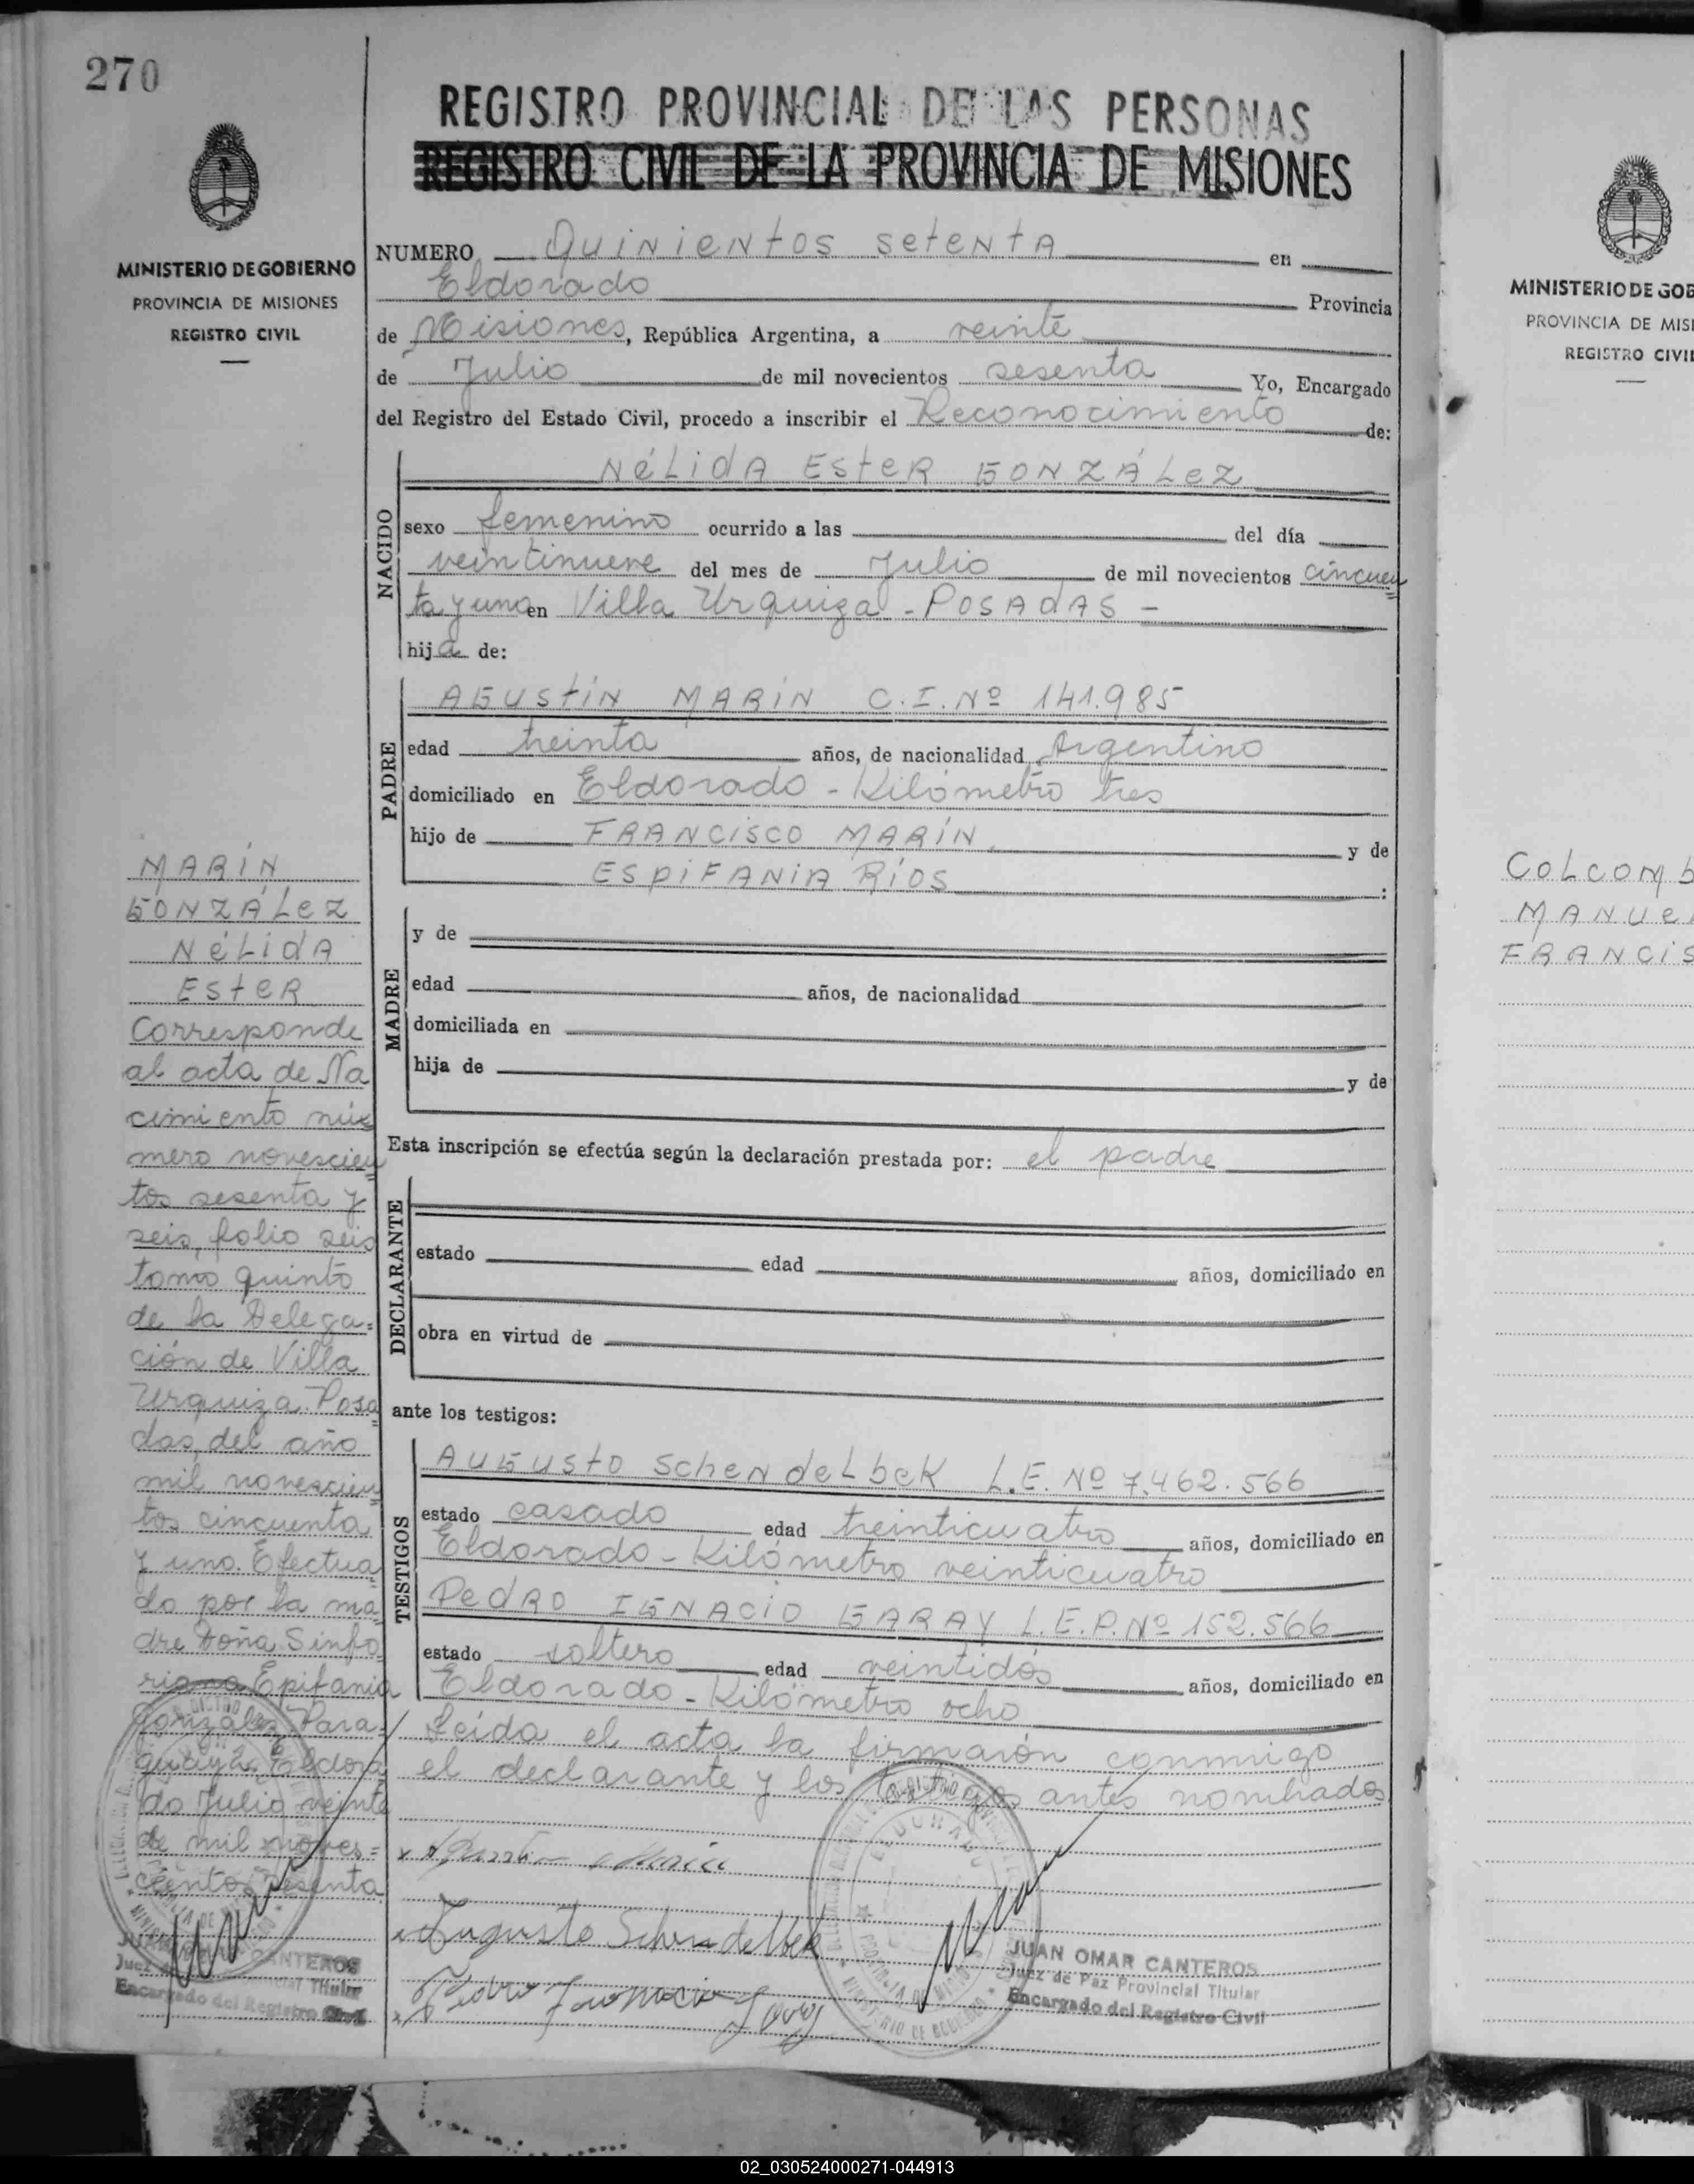 270
REGISTRO PROVINCIAL DE LAS PERSONAS
REGISTRO CIVIL DE LA PROVINCIA DE MISIONES
MINISTERIO DE GOBIERNO
PROVINCIA DE MISIONES
REGISTRO CIVIL
NUMERO Quinientos setenta en
Eldorado Provincia
de Misiones, República Argentina, a veinte
de Julio de mil novecientos sesenta Yo, Encargado
del Registro del Estado Civil, procedo a inscribir el Reconocimiento de:
NACIDO
NéLidA EsteR GONZÁLeZ
sexo femenino ocurrido a las del día
veintinueve del mes de Julio de mil novecientos cincuen
ta y uno en Villa Urquiza - POSAdAS -
hija de:
PADRE
AGUStíN MARíN C.I.Nº 141.985
edad treinta años, de nacionalidad Argentino
domiciliado en Eldorado - Kilómetro tres
hijo de FRANCisCO MARíN y de
ESpiFANiA RíOS :
MADRE
y de
edad años, de nacionalidad
domiciliada en
hija de y de
Esta inscripción se efectúa según la declaración prestada por: el padre
DECLARANTE
estado edad años, domiciliado en
obra en virtud de
ante los testigos:
TESTIGOS
AUGUsto SchendeLbeK L.E. Nº 7.462.566
estado casado edad treinticuatro años, domiciliado en
Eldorado - Kilómetro veinticuatro
PedRO IGNACiO GARAY L.E.P.Nº 152.566
estado soltero edad veintidós años, domiciliado en
Eldorado - Kilómetro ocho
Leída el acta la firmarón conmigo
el declarante y los testigos antes nombrados
Augusto Schendelbek
Pedro Ignacio Garay
JUAN OMAR CANTEROS
Juez de Paz Provincial Titular
Encargado del Registro Civil
MARíN
GONZÁLeZ
NéLidA
EsteR
Corresponde
al acta de Na
cimiento nú=
mero novescien
tos sesenta y
seis, folio seis
tomo quinto
de la Delega=
ción de Villa
Urquiza. Posa
das, del año
mil novescien
tos cincuenta
y uno. Efectua
do por la ma
dre Doña Sinfo
riana Epifania
González, Para=
guaya. Eldora
do Julio veinte
de mil noves=
cientos sesenta
CANTEROS
Juez
Titular
Encargado del Registro Civil
MINISTERIO DE GOB
PROVINCIA DE MISI
REGISTRO CIVIL
COLCOMb
MANUe
FRANCiS
02_030524000271-044913